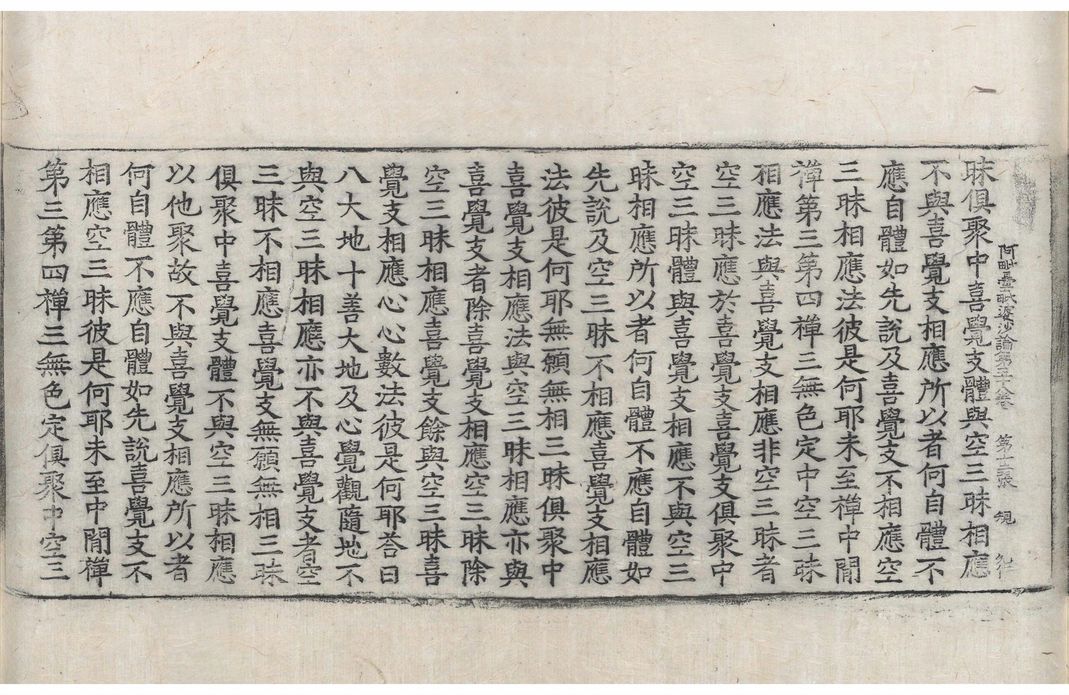 阿毗曇毗婆沙論第三十八卷 第十三張 規
昧俱聚中喜覺支體與空三昧相應
不與喜覺支相應所以者何自體不
應自體如先說及喜覺支不相應空
三昧相應法彼是何耶未至禪中閒
禪第三第四禪三無色定中空三昧
相應法與喜覺支相應非空三昧者
空三昧應於喜覺支喜覺支俱聚中
空三昧體與喜覺支相應不與空三
昧相應所以者何自體不應自體如
先說及空三昧不相應喜覺支相應
法彼是何耶無願無相三昧俱聚中
喜覺支相應法與空三昧相應亦與
喜覺支者除喜覺支相應空三昧除
空三昧相應喜覺支餘與空三昧喜
覺支相應心心數法彼是何耶荅曰
八大地十善大地及心覺觀隨地不
與空三昧相應亦不與喜覺支者空
三昧不相應喜覺支無願無相三昧
俱聚中喜覺支體不與空三昧相應
以他聚故不與喜覺支相應所以者
何自體不應自體如先說喜覺支不
相應空三昧彼是何耶未至中閒禪
第三第四禪三無色定俱聚中空三